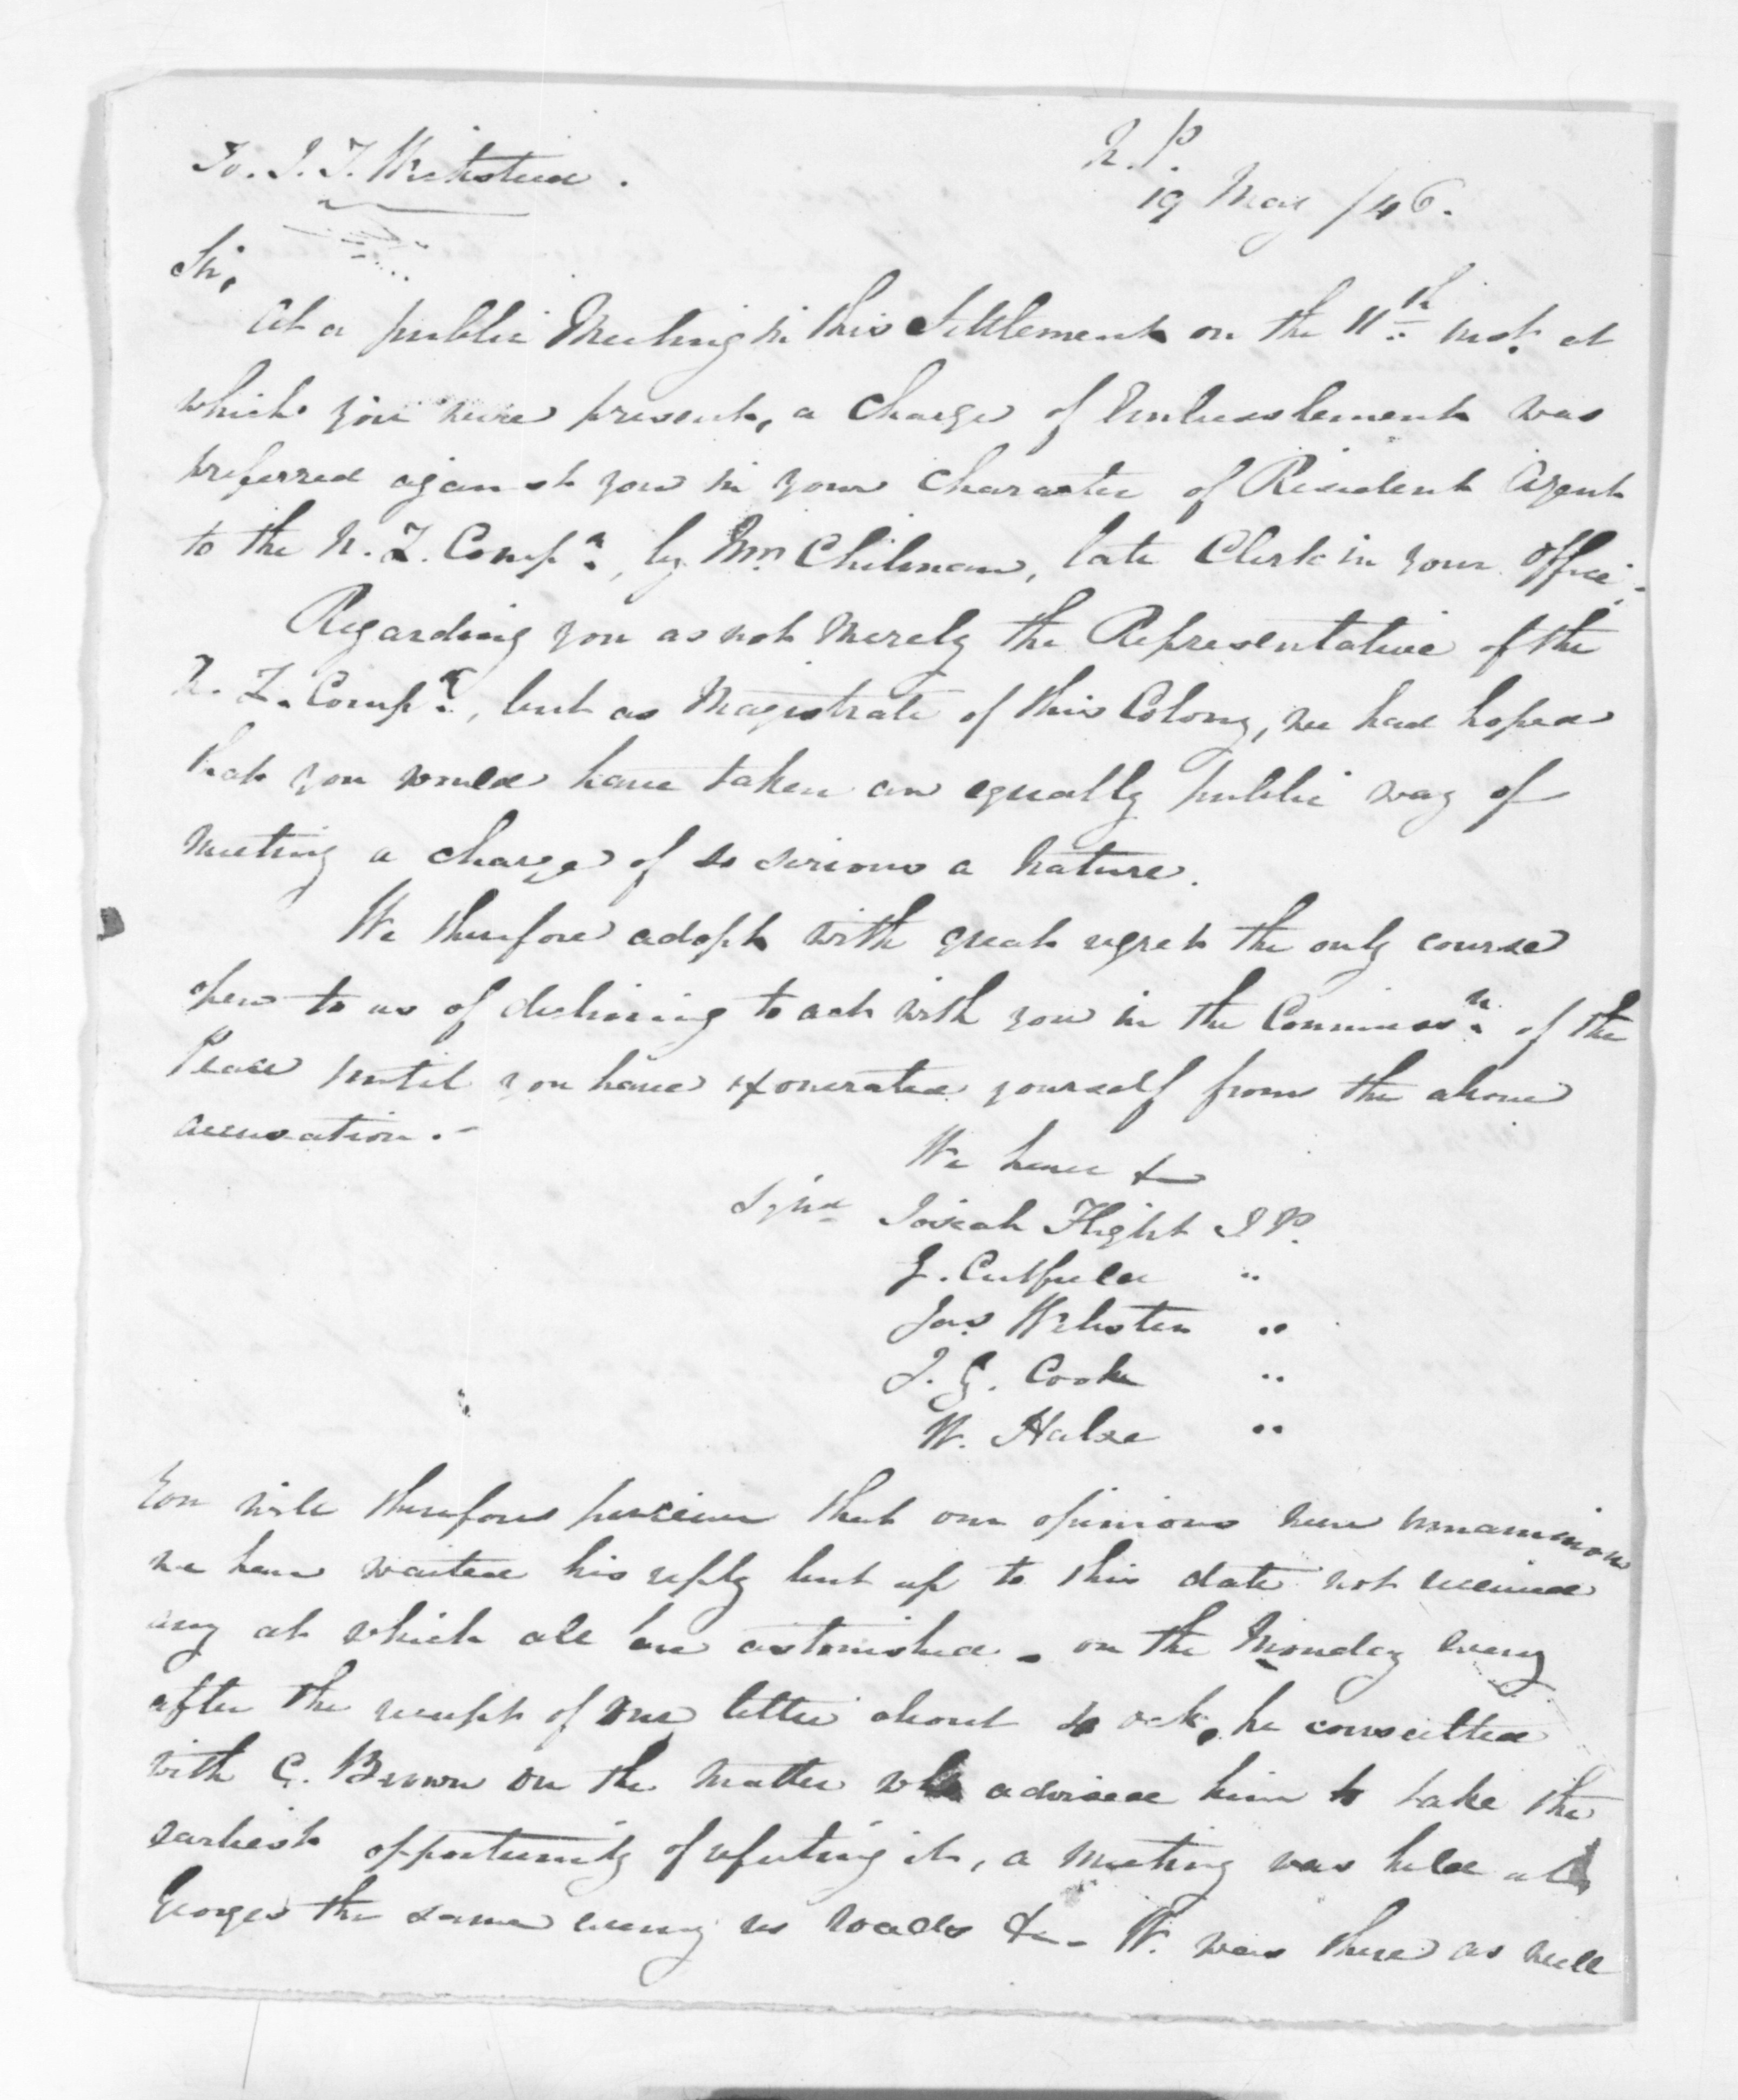 To. J. T. Wicksteed.
N. P.
19 May /46.
Sir,
At a public Meeting in this Settlement on the 11th inst. at
which you were present, a charge of Embesslement was
preferred against you in your character of Resident Agent
to the N. Z. Compy., by Mr. Chilman, late Clerk in your office.
Regarding you as not merely the Representative of the
N. Z. Compy., but as Magistrate of this Colony, we had hoped
that you would have taken an equally public way of
meeting a charge of so serious a nature.
We therefore adopt with great regret the only course
open to us of declining to act with you in the Commissn. of the
Peace until you have exonerated yourself from the above
accusation.-
We have &
Signd Josiah Flight J P.
G. Cutfield "
Jas. Webster "
J. G. Cooke "
W. Halse "
You will therefore perceive that our opinions were unanimous
we have waited his reply but up to this date not received
any at which all are astonished - on the Monday eveng
after the receipt of our letter about 4 ock, he consulted
with C. Brown on the matter who advised him to take the
earliest opportunity of refuting it, a meeting was held at
Georges the same eveng re roads &c - W. was there as well